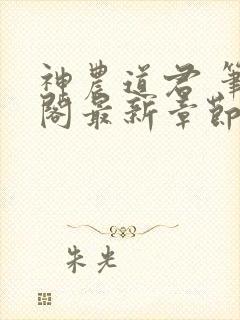 神農道君 筆
閣最新章節
朱光